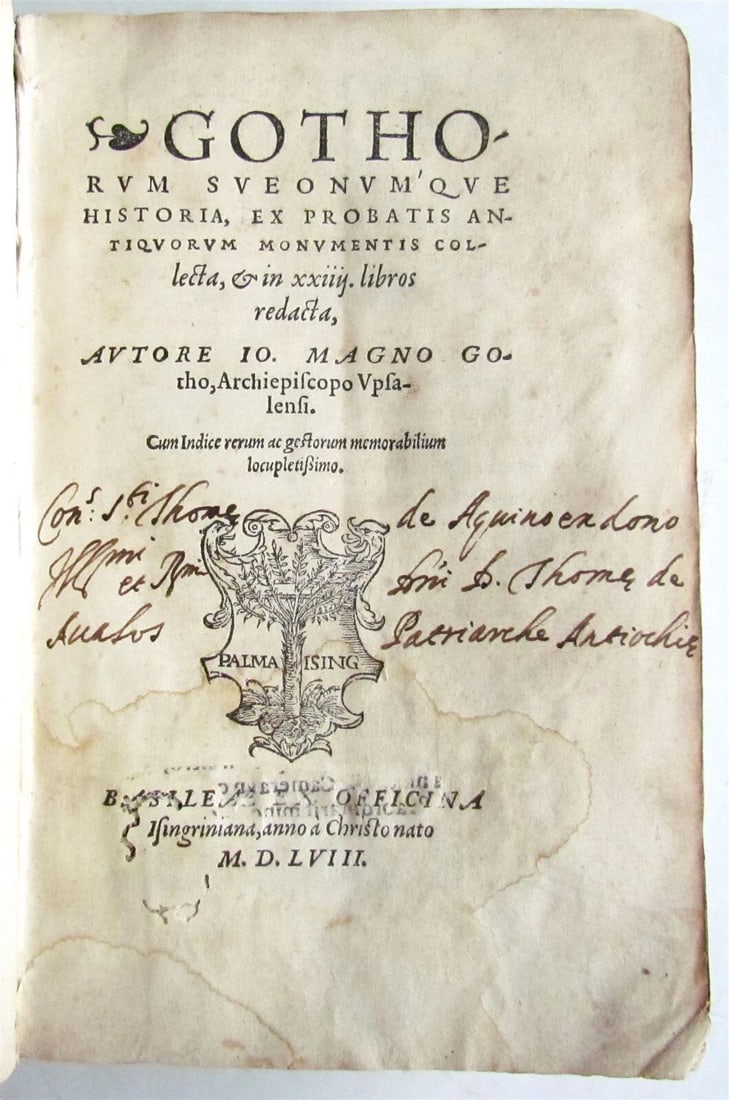 GOTHO-
RVM SVEONVM'QVE
HISTORIA, EX PROBATIS AN-
TIQVORVM MONVMENTIS COL-
lecta, & in xxiiij. libros
redacta,
AVTORE IO. MAGNO GO-
tho, Archiepiſcopo Vpſa-
lenſi.
Cum Indice rerum ac geſtorum memorabilium
locupletiſsimo.
Con.s S.ti Thomę de Aquino ex dono
Illmi et Rmi Dñi D. Thomę de
Aualos Patriarche Antiochię
PALMA ISING
BASILEAE EX OFFICINA
Iſingriniana, anno a Chriſto nato
M. D. LVIII.